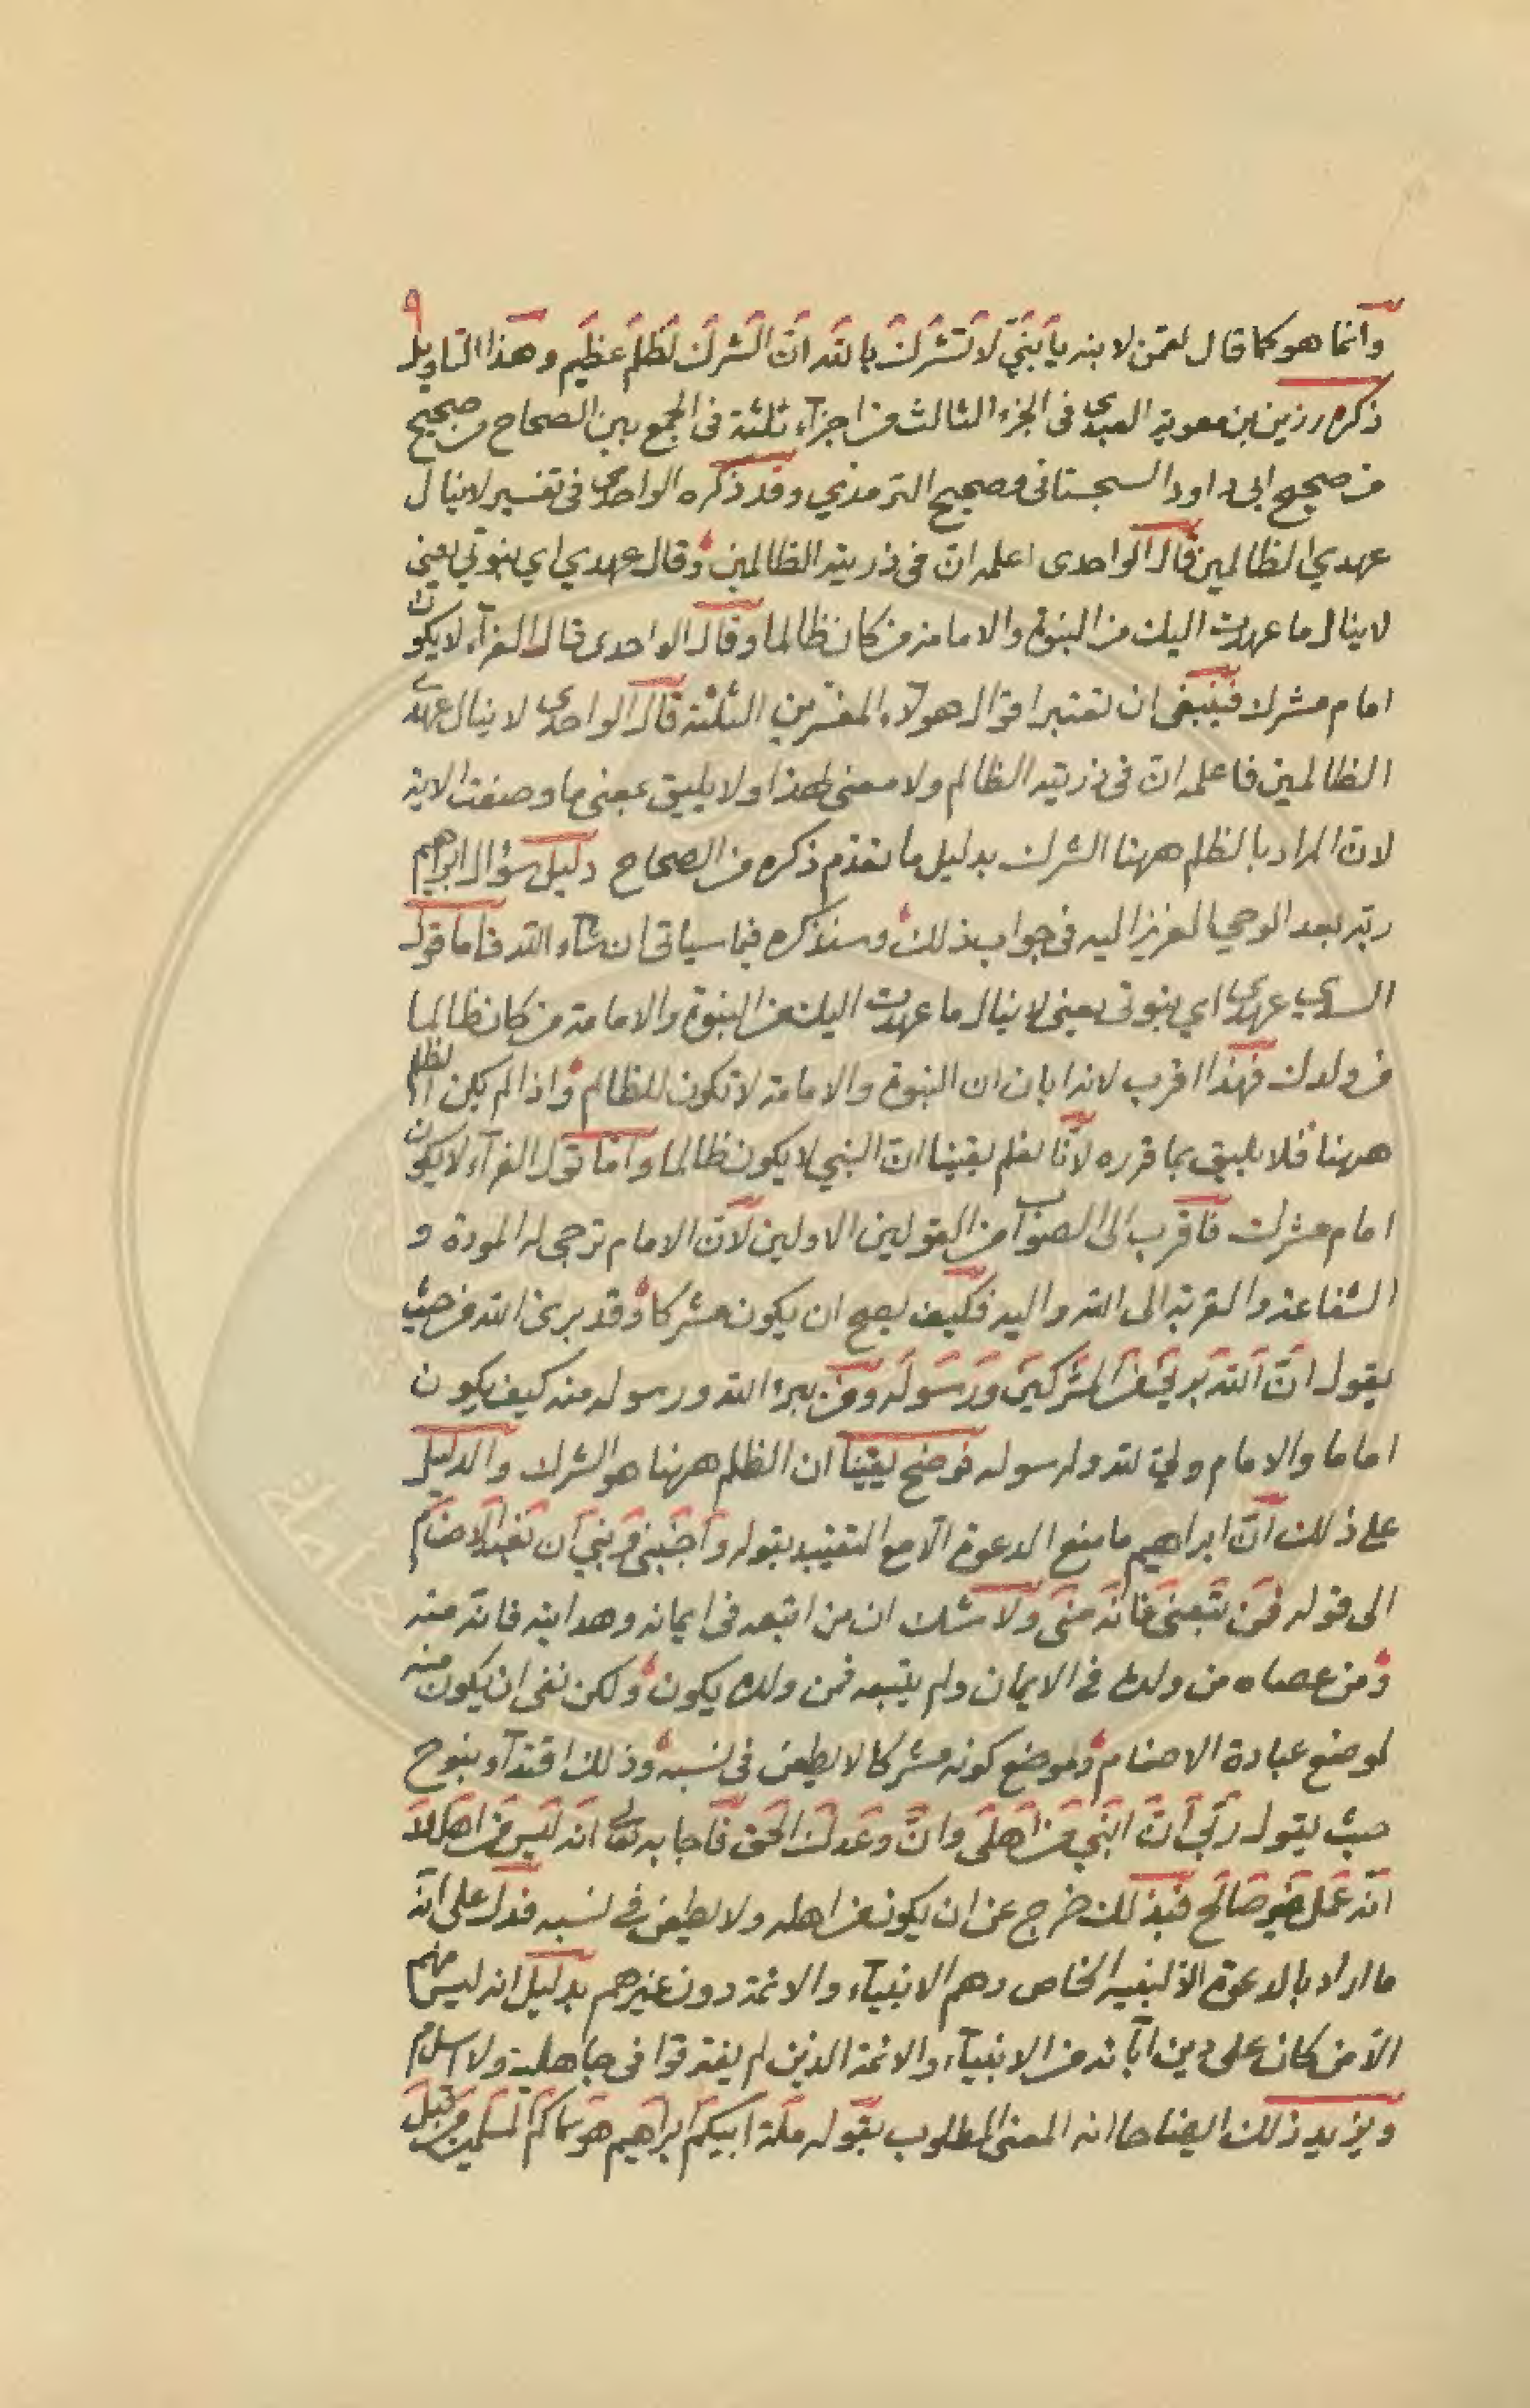 ٩
وانما هو كما قال لقمن لابنه يَا بُنَيَّ لَا تُشْرِكْ بِاللّه انَّ الشِّرْكَ لَظُلْمٌ عَظِيم وهذا التاويل
ذكره رزين بن معوية العبدى فى الجزء الثالث من اجزآء ثلثة فى الجمع بين الصحاح من صحيح
من صحيح ابى داود السجستانى وصحيح الترمذي وقد ذكره الواحدى فى تفسير لا ينال
عهدي الظالمين قال الواحدى اعلمه ان فى ذريته الظالمين وقال عهدي اي نبوتي يعنى
لا ينال ما عهدت اليك من النبوة والامامة من كان ظالما وقال الواحدى قال الفرآء لا يكون
امام مشرك فينبغى ان تعتبر اقوال هولآء المفسرين الثلثة قال الواحدى لا ينال عهدى
الظالمين فاعلمه ان فى ذريته الظالم ولا معنى لهذا ولا يليق بمعنى ما وصفت الاية
لان المراد بالظلم ههنا الشرك بدليل ما تقدم ذكره من الصحاح دليل سؤال ابراهيم
ربه بعد الوحي العزيز اليه فى جواب ذلك وسنذكره فيما سياتى ان شآء الله فاما قول
السدي عهدى اي نبوتى يعنى لا ينال ما عهدت اليك من النبوة والامامة من كان ظالما
من ولدك فهذا اقرب لانه ابان ان النبوة والامامة لا تكون للظالم واذا لم يكن الظلم
ههنا فلا يليق بما قرره لانّا نعلم يقينا انّ النبي لا يكون ظالما وامّا قول الفرآء لا يكون
امام مشرك فاقرب الى الصواب من القولين الاولين لانّ الامام ترجى له المودة و
الشفاعة والقربة الى الله واليه فكيف يصح ان يكون مشركا وقد برى الله من حيث
يقول انَّ اللّه بَرِيءٌ مِنَ الْمُشْرِكِينَ وَرَسُولُه ومن برء الله ورسوله منه كيف يكون
اماما والامام ولي لله ولرسوله فوضح يقينا ان الظلم ههنا هو الشرك والدليل
على ذلك انّ ابراهيم ما منع الدعوة الّا مع التقييد بقوله وَاجْنُبْنِى وَبَنِيَّ أَنْ نَعْبُدَ الْأَصْنَام
الى قوله فَمَن تَبِعَنِى فَانّهُ مِنّى ولا شك ان من اتبعه فى ايمانه وهدايته فانه منه
ومن عصاه من ولده فى الايمان ولم يتبعه فمن ولده يكون ولكن نفى ان يكون منه
لموضع عبادة الاصنام ولموضع كونه مشركا لا يطعن فى نسبه وذلك اقتدآء بنوح
حيث يقول رَبِّ انَّ ابْنِي مِنْ اَهْلِى وَانَّ وَعْدَكَ الْحَق فاجابه تعالى انه لَيْسَ مِنْ اَهْلِكَ
انّه عَمَلٌ غَيْرُ صَالِح فبذلك خرج عن ان يكون من اهله ولا يطعن فى نسبه فدل على انّه
ما اراد بالدعوة الّا لبنيه الخاص وهم الانبيآء والائمة دون غيرهم بدليل انه ليس منهم
الّا من كان على دين آبائه من الانبيآء والائمة الذين لم يفترقوا فى جاهلية ولا اسلام
ويزيد ذلك ايضاحا انه المعنى المطلوب بقوله مِلَّةَ اَبِيكُمْ اِبْرَاهِيم هُوَ سَمَّاكُمُ الْمُسْلِمِينَ مِنْ قَبْلُ